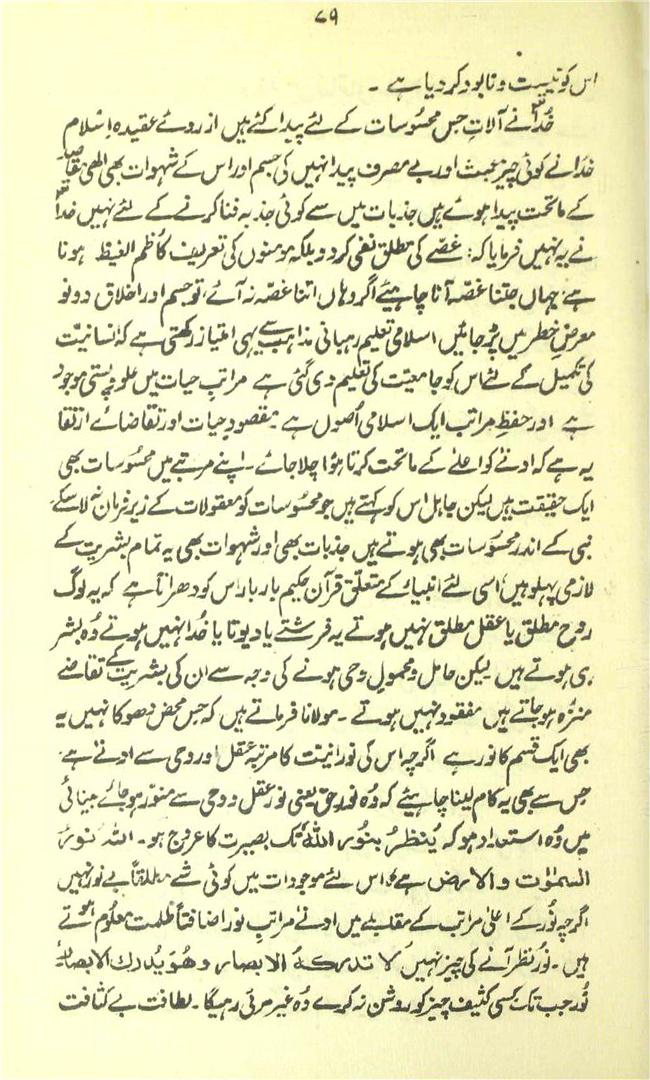 ۷۹
اس کو نیست و نابود کر دیا ہے ۔
خدا نے آلاتِ حس محسوسات کے لئے پیدا کئے ہیں ازروئے عقیدہ اسلام
خدا نے کوئی چیز عبث اور بے مصرف پیدا نہیں کی جسم اور اس کے شہوات بھی الٰھی مقاصد
کے ماتحت پیدا ہوئے ہیں جذبات میں سے کوئی جذبہ فنا کرنے کے لئے نہیں خدا
نے یہ نہیں فرمایا کہ: غصے کی مطلق نفی کر دو بلکہ مومنوں کی تعریف کاظم الغیظ ہونا
ہے، جہاں جتنا غصّہ آنا چاہیئے اگر وہاں اتنا غصّہ نہ آئے، تو جسم اور اخلاق دونو
معرضِ خطر میں پڑ جائیں اسلامی تعلیم رہبانی مذاہب سے یہی امتیاز رکھتی ہے کہ انسانیت
کی تکمیل کے لئے اس کو جامعیّت کی تعلیم دی گئی ہے مراتبِ حیات میں علو و پستی موجود
ہے اور حفظِ مراتب ایک اسلامی اُصول ہے مقصودِ حیات اور تقاضائے ارتقا
یہ ہے کہ ادنےٰ کو اعلےٰ کے ماتحت کرتا ہوا چلا جائے ۔ اپنے مرتبے میں محسُوسات بھی
ایک حقیقت ہیں لیکن جاہل اس کو کہتے ہیں جو محسُوسات کو معقولات کے زیر فرمان نہ لا سکے
نبی کے اندر محسُوسات بھی ہوتے ہیں جذبات بھی اور شہوات بھی یہ تمام بشریت کے
لازمی پہلو ہیں، اسی لئے انبیاء کے متعلق قرآن حکیم بار بار اس کو دھراتا ہے کہ یہ لوگ
روح مطلق یا عقل مطلق نہیں ہوتے یہ فرشتے یا دیوتا یا خدا نہیں ہوتے وُہ بشر
ہی ہوتے ہیں لیکن حامل و محمولِ وحی ہونے کی وجہ سے ان کی بشریت کے تقاضے
منزّہ ہو جاتے ہیں مفقود نہیں ہوتے ۔ مولانا فرماتے ہیں کہ حس محض دھوکا نہیں یہ
بھی ایک قسم کا نور ہے اگرچہ اس کی نورانیت کا مرتبہ عقل اور وحی سے ادنےٰ ہے
حِس سے بھی یہ کام لینا چاہیئے کہ وُہ نورِ حق یعنی نورِ عقل و وحی سے منور ہو جائے بینائی
میں وُہ استعداد ہو کہ یُنظرُ بنُور اللّٰہ تک بصیرت کا عروج ہو ۔ اللّٰہ نورُ
السمٰوٰت والارض ہے؛ اس لئے موجودات میں کوئی شے مطلقاً بے نور نہیں
اگرچہ نُور کے اعلیٰ مراتب کے مقابلے میں ادنےٰ مراتبِ نور اضافتاً ظلمت معلُوم ہوتے
ہیں ۔ نُور نظر آنے کی چیز نہیں لا تدرکہُ الابصار وھُو یُدرك الابصارُ
نُور جب تک کسی کثیف چیز کو روشن نہ کرے وُہ غیر مرئی رہیگا ۔ لطافت بے کثافت